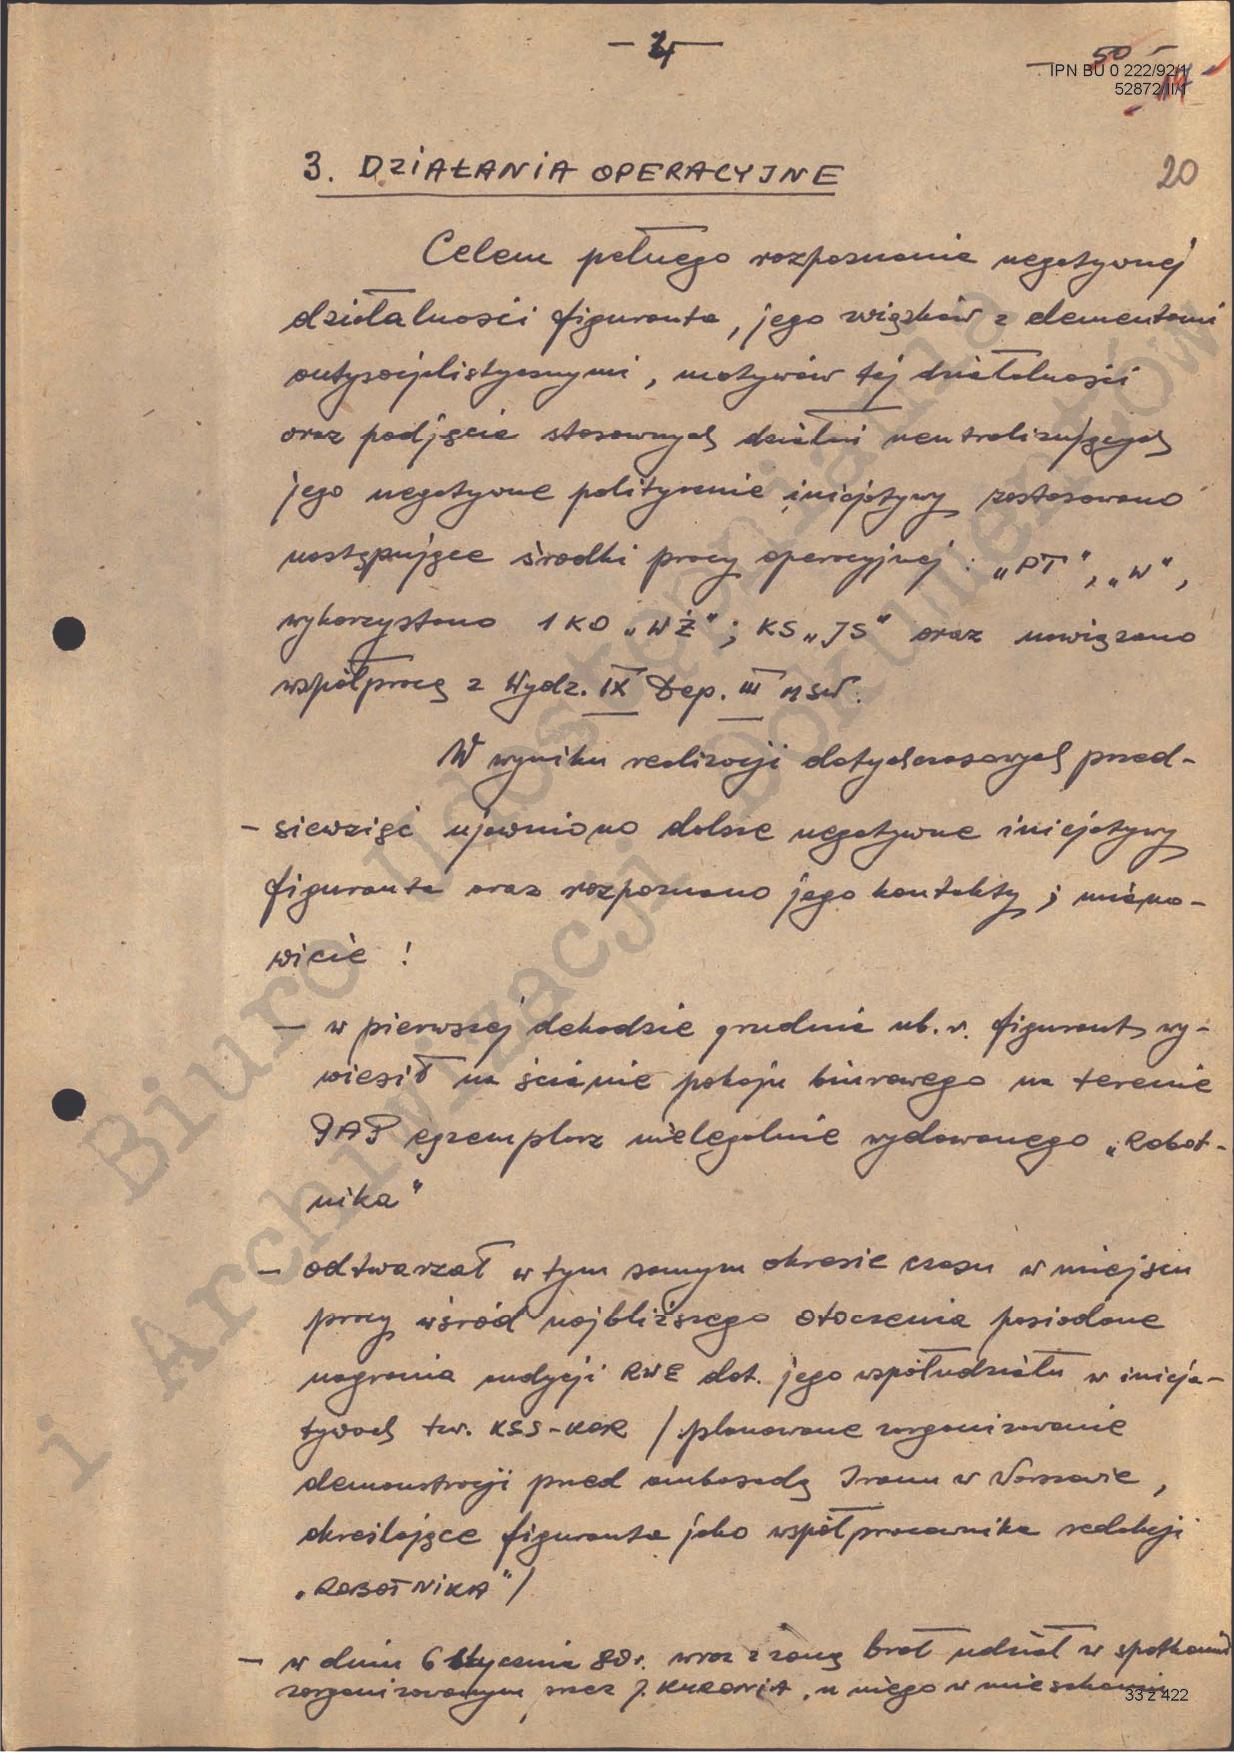 - 4 -
50
IPN BU 0 222/92/1
52872/II/1
20
3. DZIAŁANIA OPERACYJNE
Celem pełnego rozpoznania negatywnej
działalności figuranta, jego związków z elementami
antysocjalistycznymi, motywów tej działalności
oraz podjęcia stosownych działań neutralizujących
jego negatywne politycznie inicjatywy zastosowano
następujące środki pracy operacyjnej: „PT", „W",
wykorzystano 1 KO „WŻ"; KS „JS" oraz nawiązano
współpracę z Wydz. IX Dep. III MSW.
W wyniku realizacji dotychczasowych przed-
- sięwzięć ujawniono dalsze negatywne inicjatywy
figuranta oraz rozpoznano jego kontakty; miano-
wicie !
- w pierwszej dekadzie grudnia ub. r. figurant wy-
wiesił na ścianie pokoju biurowego na terenie
PAP egzemplarz nielegalnie wydawanego „Robot-
nika"
- odtwarzał w tym samym okresie czasu w miejscu
pracy wśród najbliższego otoczenia posiadane
nagrania audycji RWE dot. jego współudziału w inicja-
tywach tzw. KSS-KOR / planowane zorganizowanie
demonstracji przed ambasadą Iranu w Warszawie,
określające figuranta jako współpracownika redakcji
„ROBOTNIKA" /
- w dniu 6 stycznia 80 r. wraz z żoną brał udział w spotkaniu
zorganizowanym przez J. KURONIA, u niego w mieszkaniu
33 z 422
Biuro Udostępniania
i Archiwizacji Dokumentów